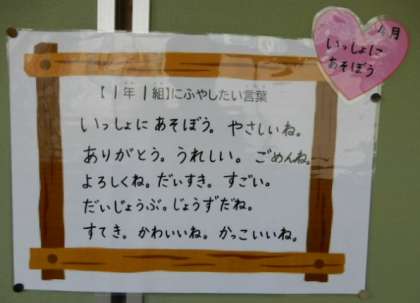 4月
いっしょに
あそぼう
【1年1組】にふやしたい言葉
いっしょに あそぼう。 やさしいね。
ありがとう。 うれしい。 ごめんね。
よろしくね。 だいすき。 すごい。
だいじょうぶ。 じょうずだね。
すてき。 かわいいね。 かっこいいね。